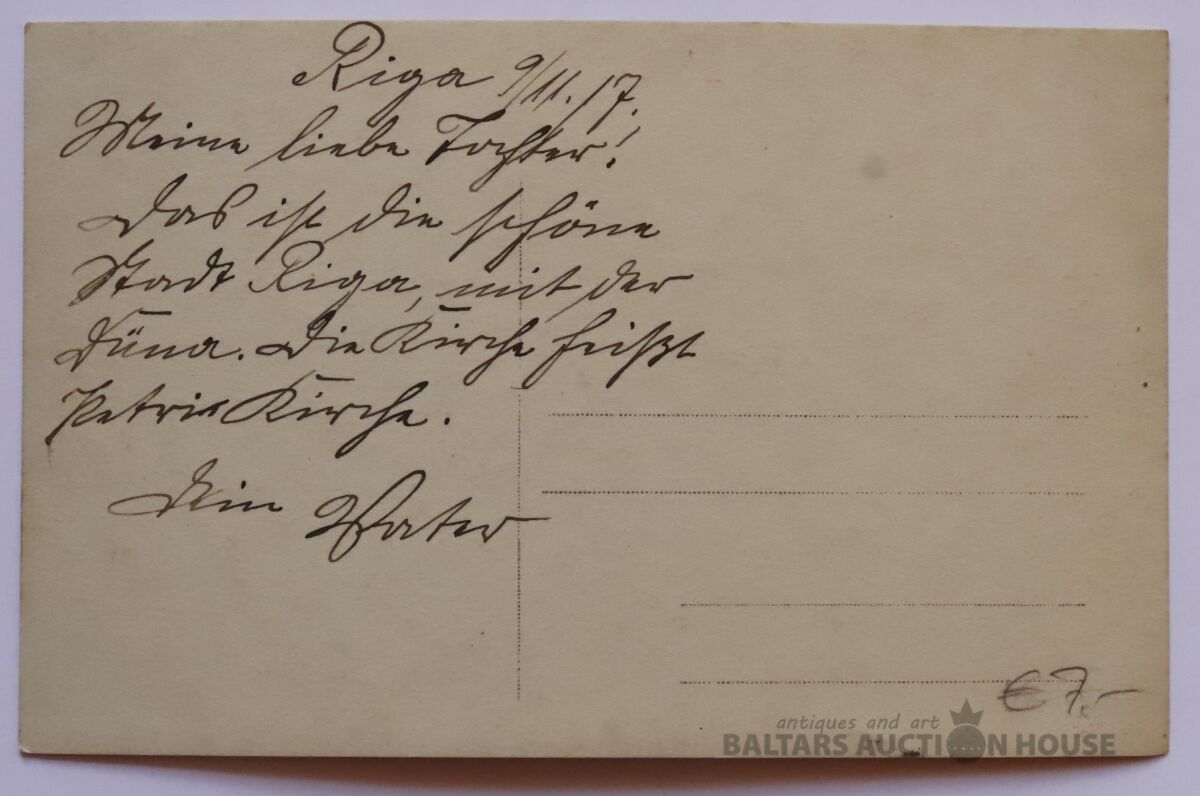 Riga 9/11. 17.
Meine liebe Tochter!
Das ist die schöne
Stadt Riga, mit der
Düna. Die Kirche heißt
Petri Kirche.
Dein Vater
€ 7,-
antiques and art
BALTARS AUCTION HOUSE